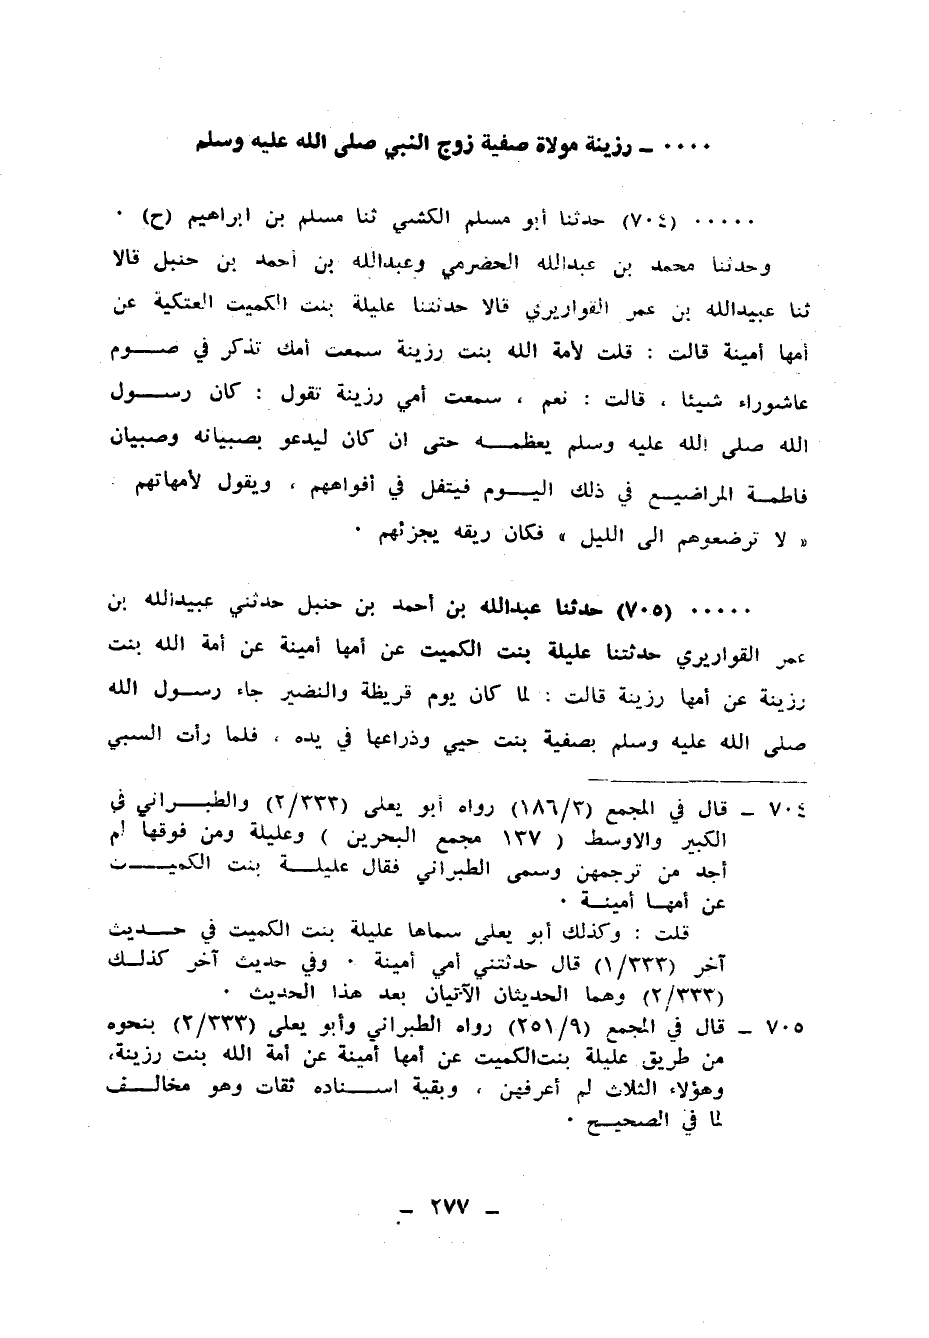 ٠٠٠٠ ـ رزينة مولاة صفية زوج النبي صلى الله عليه وسلم
٠٠٠٠٠ (٧٠٤) حدثنا أبو مسلم الكشي ثنا مسلم بن ابراهيم (ح) ٠
وحدثنا محمد بن عبدالله الحضرمي وعبدالله بن أحمد بن حنبل قالا
ثنا عبيدالله بن عمر القواريري قالا حدثتنا عليلة بنت الكميت العتكية عن
أمها أمينة قالت : قلت لأمة الله بنت رزينة سمعت أمك تذكر في صـــوم
عاشوراء شيئا ، قالت : نعم ، سمعت أمي رزينة تقول : كان رســـول
الله صلى الله عليه وسلم يعظمـــه حتى ان كان ليدعو بصبيانه وصبيان
فاطمـة المراضيـع في ذلك اليـــوم فيتفل في أفواههم ، ويقول لأمهاتهم
« لا ترضعوهم الى الليل » فكان ريقه يجزئهم ٠
٠٠٠٠٠ (٧٠٥) حدثنا عبدالله بن أحمد بن حنبل حدثني عبيدالله بن
عمر القواريري حدثتنا عليلة بنت الكميت عن أمها أمينة عن أمة الله بنت
رزينة عن أمها رزينة قالت : لما كان يوم قريظة والنضير جاء رسول الله
صلى الله عليه وسلم بصفية بنت حيي وذراعها في يده ، فلما رأت السبي
٧٠٤ ـ قال في المجمع (١٨٦/٣) رواه أبو يعلى (٢/٣٣٣) والطبـــراني في
الكبير والاوسط ( ١٣٧ مجمع البحرين ) وعليلة ومن فوقها لم
أجد من ترجمهن وسمى الطبراني فقال عليلـــة بنت الكميـــت
عن أمهـا أمينـة ٠
قلت : وكذلك أبو يعلى سماها عليلة بنت الكميت في حـــديث
آخر (١/٣٣٣) قال حدثتني أمي أمينة ٠ وفي حديث آخر كذلـك
(٢/٣٣٣) وهما الحديثان الآتيان بعد هذا الحديث ٠
٧٠٥ ـ قال في المجمع (٢٥١/٩) رواه الطبراني وأبو يعلى (٢/٣٣٣) بنحوه
من طريق عليلة بنت الكميت عن أمها أمينة عن أمة الله بنت رزينة،
وهؤلاء الثلاث لم أعرفهن ، وبقية اسـناده ثقات وهو مخالـف
لما في الصحيـح ٠
ـ ٢٧٧ ـ